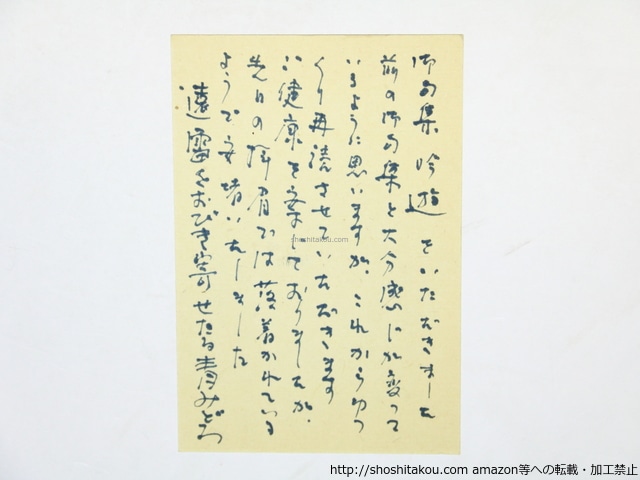 御句集 吟遊 をいただきました
前の御句集と大分感じが変って
いるように思いますが、これからゆっ
くり再読させていただきます
御健康を案じておりましたが、
先日の拝眉では落着かれている
ようで安堵いたしました
遠雷をおびき寄せたる青みどろ
shoshitakou.com
http://shoshitakou.com amazon等への転載・加工禁止